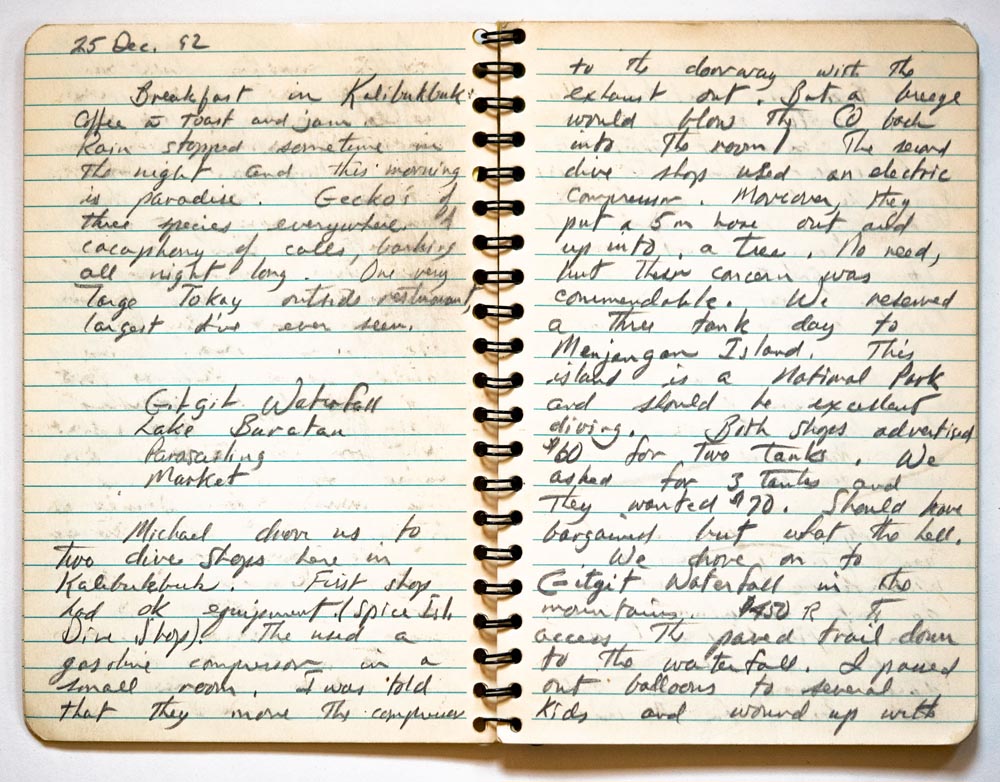 25 Dec. 92
Breakfast in Kalibukbuk:
Coffee w toast and jam.
Rain stopped sometime in
the night and this morning
is paradise. Gecko's of
three species everywhere.
cacaphony of calls, barking
all night long. One very
large Tokay outside restaurant,
largest I've ever seen.
Gitgit Waterfall
Lake Buratan
Parasailing
Market
Michael drove us to
two dive shops here in
Kalibukbuk. First shop
had ok equipment (Spice Isl.
Dive Shop). The used a
gasoline compressor in a
small room. I was told
that they move the compressor
to the doorway with the
exhaust out. But a breeze
would blow the CO back
into the room! The second
dive shop used an electric
compressor. Moreover, they
put a 5m hose out and
up into a tree. No need,
but their concern was
commendable. We reserved
a three tank day to
Menjangan Island. This
island is a National Park
and should be excellent
diving. Both shops advertised
$60 for two tanks. We
asked for 3 tanks and
they wanted $70. Should have
bargained but what the hell.
We drove on to
Gitgit Waterfall in the
mountains. 450 R to
access the paved trail down
to the waterfall. I passed
out balloons to several
kids and wound up with